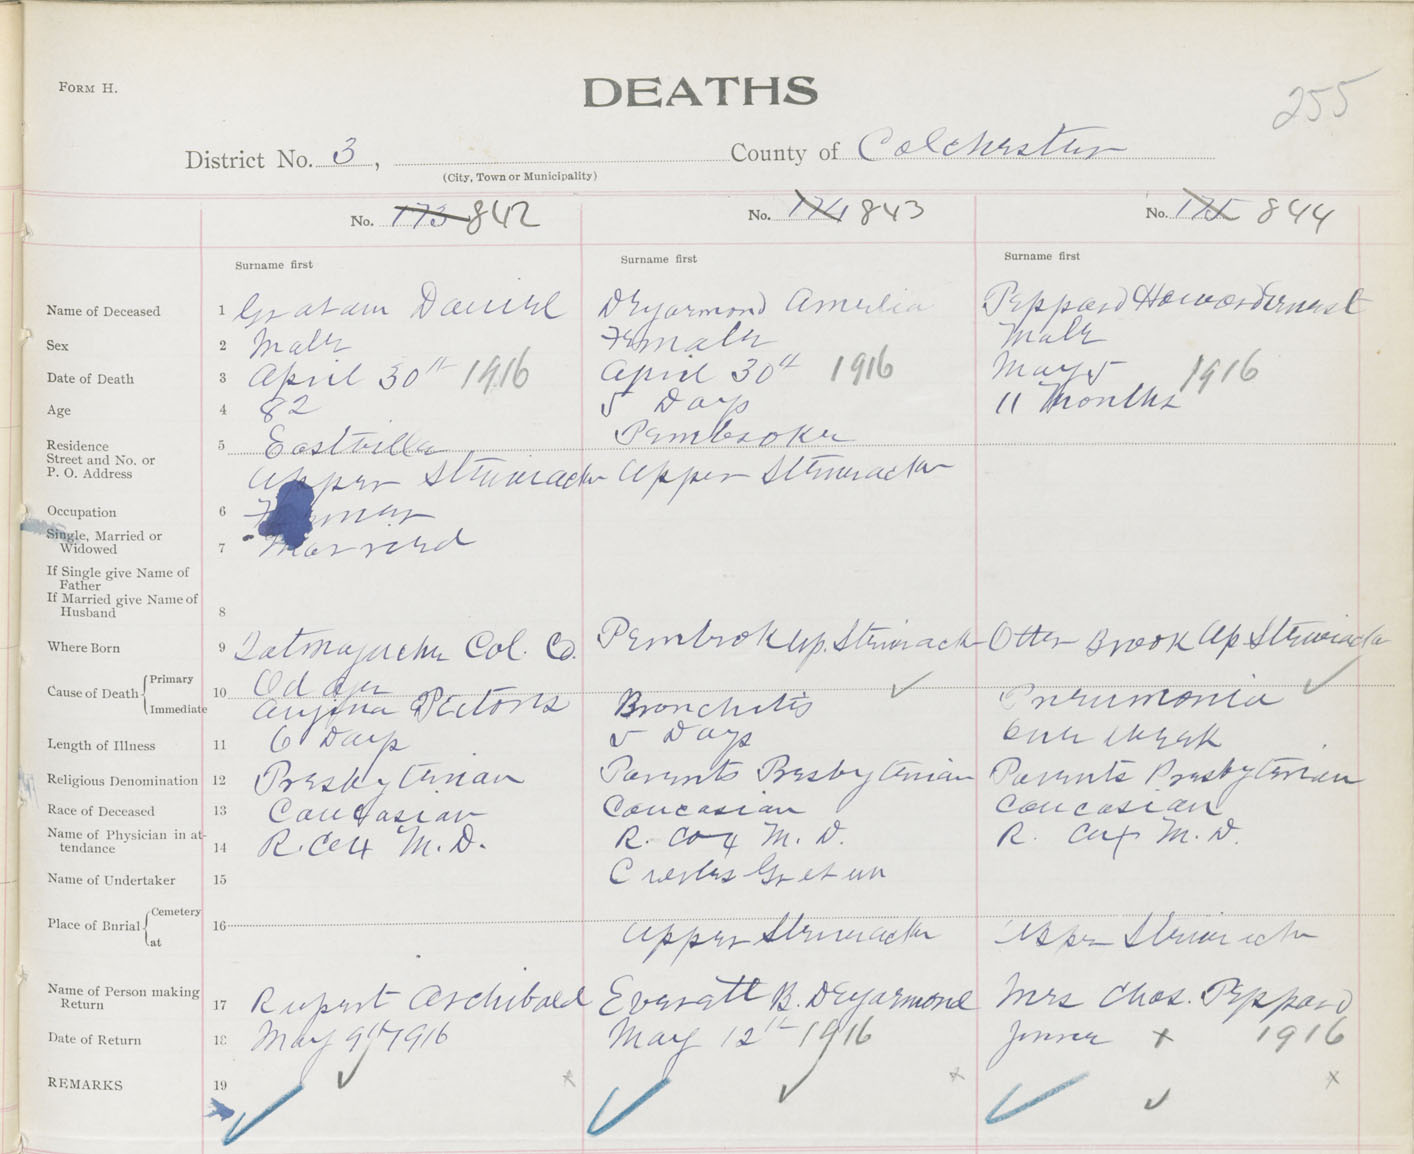 255
FORM H.
DEATHS
District No. 3, County of Colchester
(City, Town or Municipality)
No. 173 842 No. 174 843 No. 175 844
Surname first Surname first Surname first
Name of Deceased 1 Graham Daniel Deyarmond Amelia Peppard Howard Ernest
Sex 2 Male Female Male
Date of Death 3 April 30th 1916 April 30th 1916 May 5 1916
Age 4 82 5 Days 11 months
Residence 5 Eastville Pembroke
Street and No. or
P. O. Address Upper Stewiacke Upper Stewiacke
Occupation 6 Farmer
Single, Married or
Widowed 7 Married
If Single give Name of
Father
If Married give Name of
Husband 8
Where Born 9 Tatmaguche Col. Co. Pembrok Up. Stewiacke Otter Brook Up Stewiacke
Cause of Death Primary 10 Old age
Immediate Angina Pectoris Bronchitis Pneumonia
Length of Illness 11 6 Days 5 Days One Week
Religious Denomination 12 Presbyterian Parents Presbyterian Parents Presbyterian
Race of Deceased 13 Caucasian Caucasian Caucasian
Name of Physician in at-
tendance 14 R. Cox M.D. R. Cox M. D. R. Cox M. D.
Name of Undertaker 15
Place of Burial Cemetery 16
at Upper Stewiacke Upper Stewiacke
Name of Person making
Return 17 Rupert Archibald Everett B. Deyarmond Mrs Chas. Peppard
Date of Return 18 May 9th 1916 May 12th 1916 x 1916
REMARKS 19 x x x